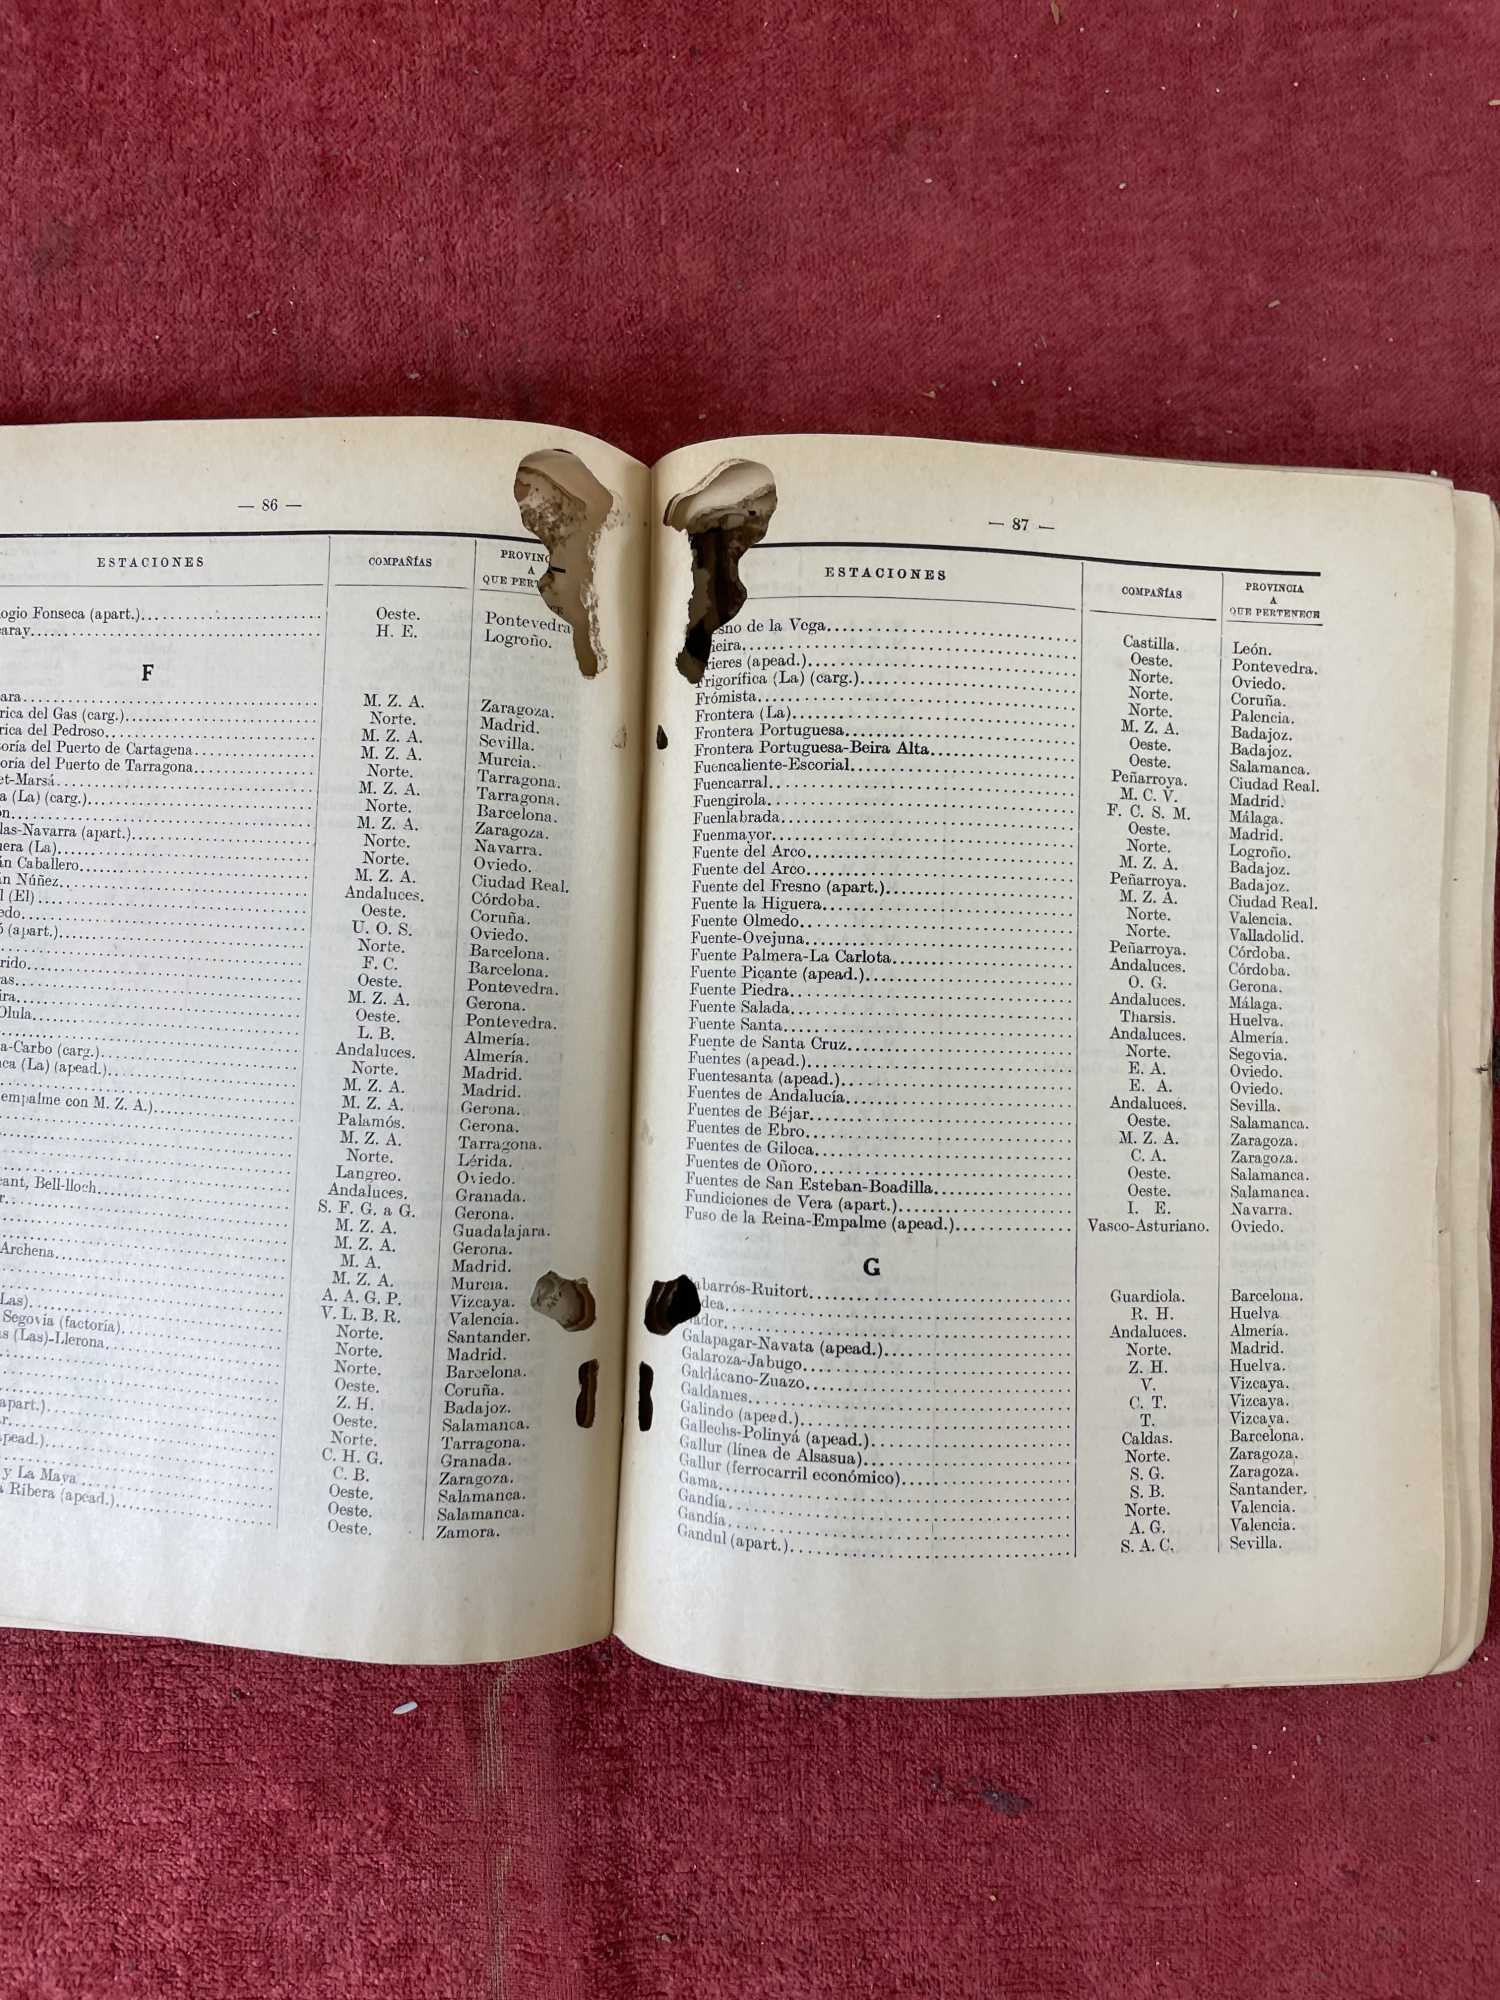 — 86 —
ESTACIONES COMPAÑÍAS PROVINC A QUE PERT
ogio Fonseca (apart.) Oeste. Pontevedra
aray Logroño. H. E.
F
ara M. Z. A. Zaragoza.
rica del Gas (carg.) Norte. Madrid.
rica del Pedroso M. Z. A. Sevilla.
toría del Puerto de Cartagena M. Z. A. Murcia.
oría del Puerto de Tarragona Norte. Tarragona.
et-Marsá M. Z. A. Tarragona.
a (La) (carg.) Norte. Barcelona.
on M. Z. A. Zaragoza.
las-Navarra (apart.) Norte. Navarra.
uera (La) Norte. Oviedo.
án Caballero M. Z. A. Ciudad Real.
án Núñez Andaluces. Córdoba.
l (El) Oeste. Coruña.
edo U. O. S. Oviedo.
ó (apart.) Norte. Barcelona.
F. C. Barcelona.
rido Oeste. Pontevedra.
as M. Z. A. Gerona.
ira Oeste. Pontevedra.
Olula L. B. Almería.
Andaluces. Almería.
a-Carbo (carg.) Norte. Madrid.
ca (La) (apead.) M. Z. A. Madrid.
M. Z. A. Gerona.
empalme con M. Z. A.) Palamós. Gerona.
M. Z. A. Tarragona.
Norte. Lérida.
Langreo. Oviedo.
Andaluces. Granada.
ant, Bell-lloch S. F. G. a G. Gerona.
r M. Z. A. Guadalajara.
M. Z. A. Gerona.
M. A. Madrid.
Archena M. Z. A. Murcia.
A. A. G. P. Vizcaya.
V. L. B. R. Valencia.
Las) Norte. Santander.
Segovia (factoría) Norte. Madrid.
s (Las)-Llerona Norte. Barcelona.
Oeste. Coruña.
Z. H. Badajoz.
Oeste. Salamanca.
apart.) Norte. Tarragona.
ar C. H. G. Granada.
pead.) C. B. Zaragoza.
Oeste. Salamanca.
y La Maya Oeste. Salamanca.
a Ribera (apead.) Oeste. Zamora.
— 87 —
ESTACIONES COMPAÑÍAS PROVINCIA A QUE PERTENECE
esno de la Vega Castilla. León.
ieira Oeste. Pontevedra.
rieres (apead.) Norte. Oviedo.
Frigorífica (La) (carg.) Norte. Coruña.
Frómista Norte. Palencia.
Frontera (La) M. Z. A. Badajoz.
Frontera Portuguesa Oeste. Badajoz.
Frontera Portuguesa-Beira Alta Oeste. Salamanca.
Fuencaliente-Escorial Peñarroya. Ciudad Real.
Fuencarral M. C. V. Madrid.
Fuengirola F. C. S. M. Málaga.
Fuenlabrada Oeste. Madrid.
Fuenmayor Norte. Logroño.
Fuente del Arco M. Z. A. Badajoz.
Fuente del Arco Peñarroya. Badajoz.
Fuente del Fresno (apart.) M. Z. A. Ciudad Real.
Fuente la Higuera Norte. Valencia.
Fuente Olmedo Norte. Valladolid.
Fuente-Ovejuna Peñarroya. Córdoba.
Fuente Palmera-La Carlota Andaluces. Córdoba.
Fuente Picante (apead.) O. G. Gerona.
Fuente Piedra Andaluces. Málaga.
Fuente Salada Tharsis. Huelva.
Fuente Santa Andaluces. Almería.
Fuente de Santa Cruz Norte. Segovia.
Fuentes (apead.) E. A. Oviedo.
Fuentesanta (apead.) E. A. Oviedo.
Fuentes de Andalucía Andaluces. Sevilla.
Fuentes de Béjar Oeste. Salamanca.
Fuentes de Ebro M. Z. A. Zaragoza.
Fuentes de Giloca C. A. Zaragoza.
Fuentes de Oñoro Oeste. Salamanca.
Fuentes de San Esteban-Boadilla Oeste. Salamanca.
Fundiciones de Vera (apart.) I. E. Navarra.
Fuso de la Reina-Empalme (apead.) Vasco-Asturiano. Oviedo.
G
abarrós-Ruitort Guardiola. Barcelona.
dea R. H. Huelva
ador Andaluces. Almería.
Galapagar-Navata (apead.) Norte. Madrid.
Galaroza-Jabugo Z. H. Huelva.
Galdácano-Zuazo V. Vizcaya.
Galdames C. T. Vizcaya.
Galindo (apead.) T. Vizcaya.
Gallechs-Polinyá (apead.) Caldas. Barcelona.
Gallur (línea de Alsasua) Norte. Zaragoza.
Gallur (ferrocarril económico) S. G. Zaragoza.
Gama S. B. Santander.
Gandía Norte. Valencia.
Gandía A. G. Valencia.
Gandul (apart.) S. A. C. Sevilla.